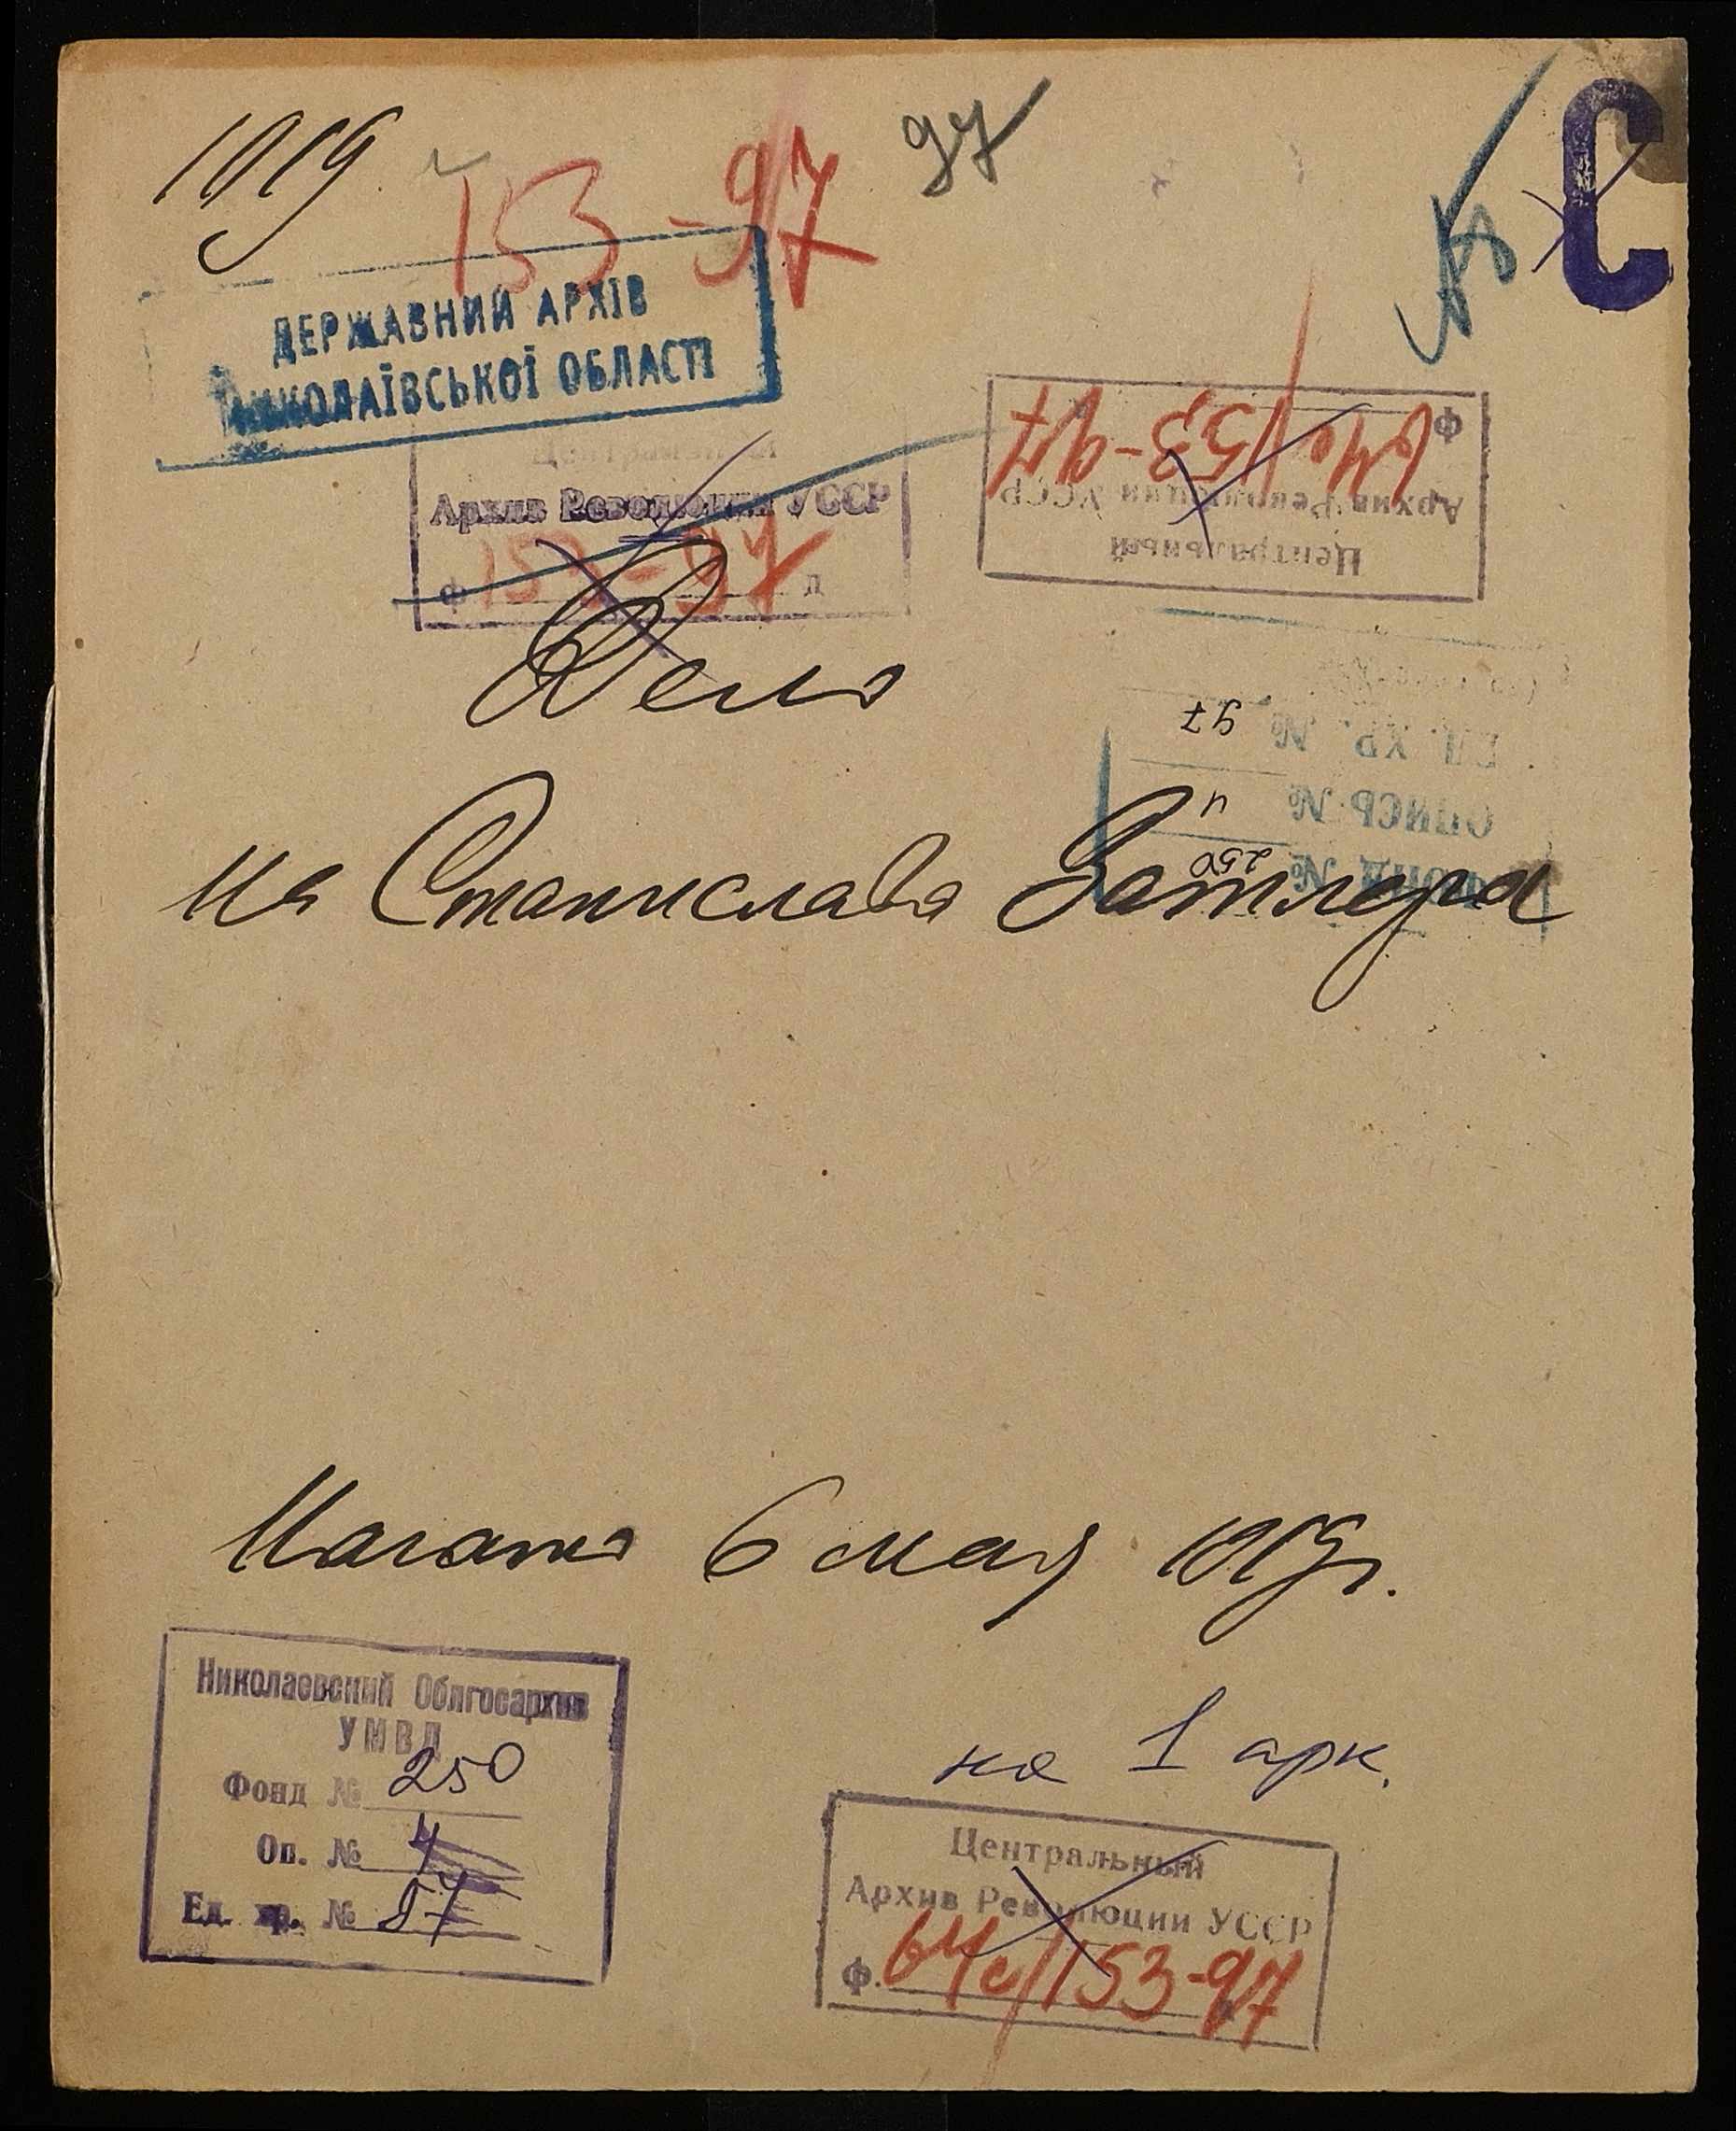 1919
153-97
97
С
ДЕРЖАВНИЙ АРХІВ
МИКОЛАЇВСЬКОЇ ОБЛАСТІ
Центральный
Архив Революции УССР
Ф 153-97 д
Центральный
Архив Революции УССР
Ф 64с/153-97
Дело
ФОНД № 250
ОПИСЬ № 4
ЕД. ХР. № 97
на Станислава Затлера
Начато 6 мая 1919 г.
Николаевский Облгосархив
УМВД
Фонд № 250
Оп. № 4
Ед. хр. № 97
на 1 арк.
Центральный
Архив Революции УССР
Ф. 64с/153-97